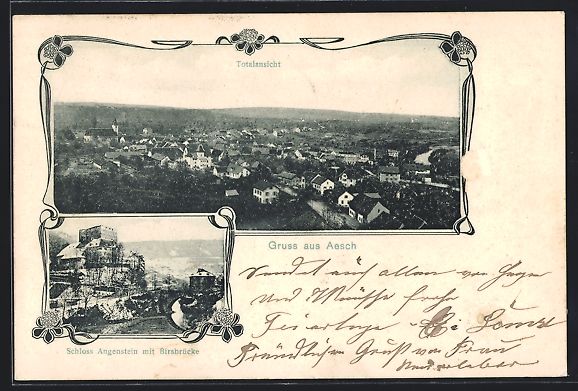 Totalansicht
Gruss aus Aesch
Schloss Angenstein mit Birsbrücke
Sendet auch allen von Herzen
und Wünsche frohe
Feiertage
Freundlichen Gruß von Frau